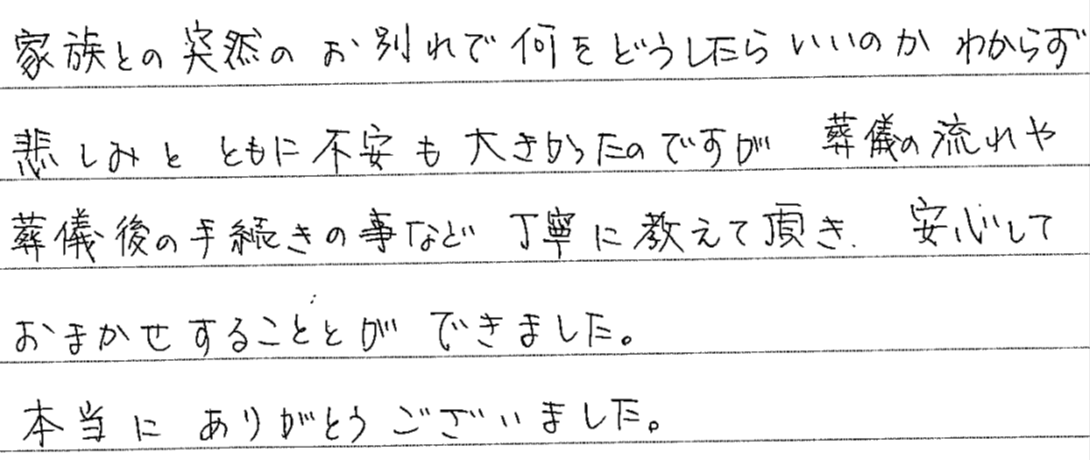 家族との突然のお別れで何をどうしたらいいのかわからず
悲しみとともに不安も大きかったのですが 葬儀の流れや
葬儀後の手続きの事など丁寧に教えて頂き、安心して
おまかせすることとができました。
本当にありがとうございました。